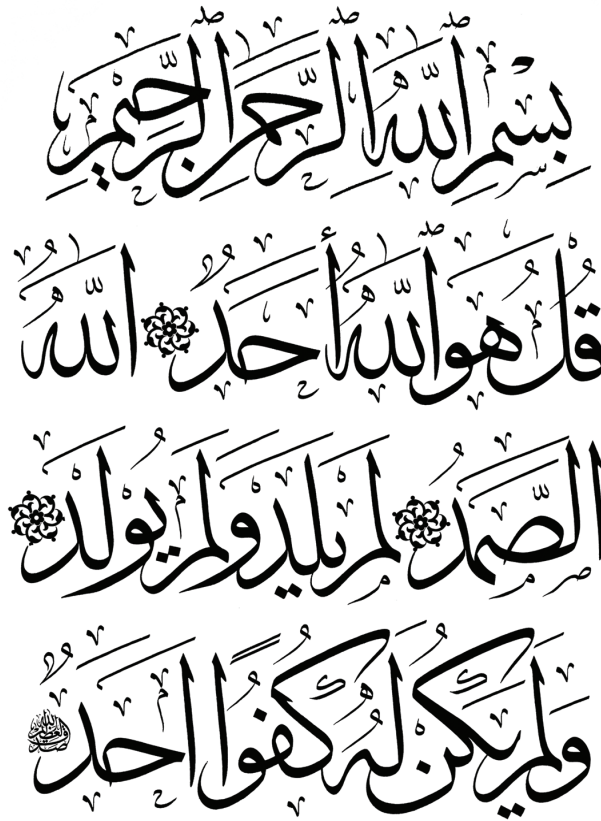 بِسْمِ ٱللَّهِ ٱلرَّحْمَٰنِ ٱلرَّحِيمِ
قُلْ هُوَ ٱللَّهُ أَحَدٌ ۝ ٱللَّهُ
ٱلصَّمَدُ ۝ لَمْ يَلِدْ وَلَمْ يُولَدْ ۝
وَلَمْ يَكُن لَّهُ كُفُوًا أَحَدٌ